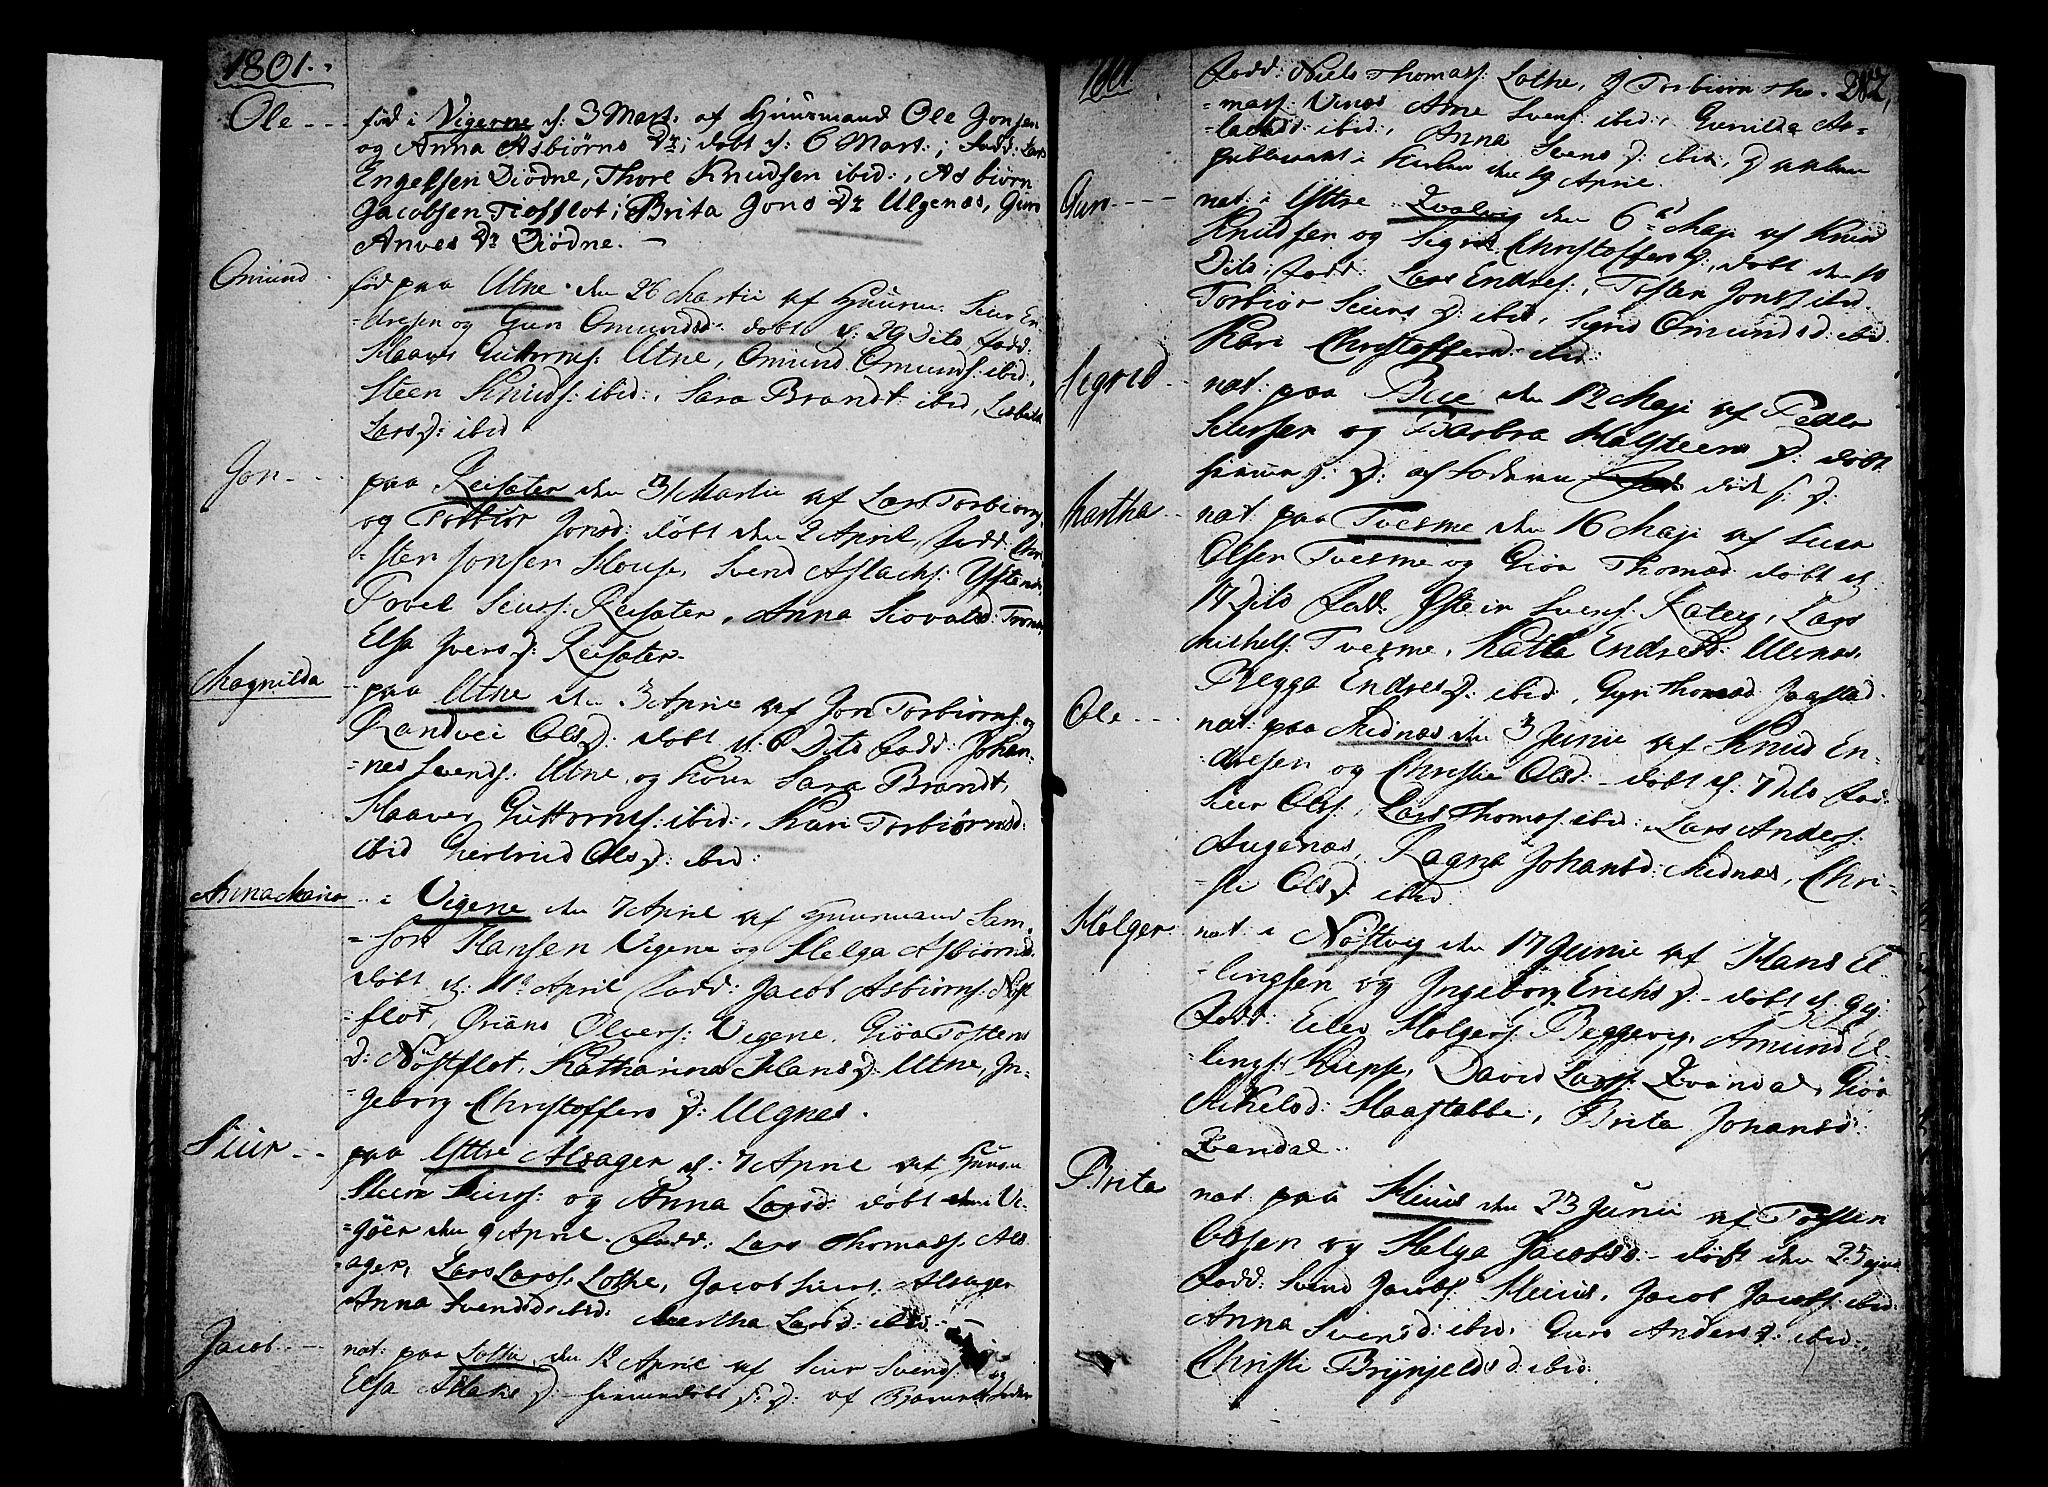 1801.
Ole
fød i Vigerne d: 3 Mart. af Huusmand Ole Jonsen
og Anna Asbiørns Dr; døbt d: 6 Mart.; Fadd: Lars
Engelsen Diødne, Thore Knudsen ibid:, Asbiørn
Jacobsen Tiofflot; Brita Jons Dr Ulgenæs, Guro
Anves Dr Diødne.
Omund
fød paa Utne den 26 Martii af Huusm: Siur En-
=dresen og Guro Omundsd: døbt d: 29 Dito, Fadd:
Haaver Guttorms: Utne, Omund Omunds: ibid:,
Steen Knuds: ibid:, Sara Brandt ibid, Lisbeth
Larsd: ibid
Jon
paa Reisæter den 31 Martii af Lars Torbiørns:
og Torbiør Jonsd: døbt den 2 April, Fadd:
=sten Jonsen House, Svend Aslachs: Ystenæs,
Povel Siurs: Reisæter, Anna Siovatsd:
Elsa Ivers d: Reisæter.
Magnilda
paa Utne den 3 April af Jon Torbiørns: og
Randvei Ols d: døbt d: 6 Dito Fadd: Johan-
=nes Svends: Utne, og Kone Sara Brandt,
Haaver Guttorms: ibid:, Kari Torbiørnsd:
ibid Giertrud Ols d: ibid:
Anna Maria
i Vigene den 7 April af Huusmand Sam-
=son Hansen Vigene og Helga Asbiørnsd:
døbt d: 11te April Fadd: Jacob Asbiørns: Nøst
=flot, Ørians Olvers: Vigene, Giøa Tostens
d: Nøstflot, Katharina Hans d: Utne, In-
geborg Christoffers d: Ulgnes.
Siur
paa Yttre Alsager d: 7 April af Huusm
Siurs: og Anna Larsd: døbt i Vi-
=gøer den 9 April. Fadd: Lars Thomass: Als
=ager, Lars Larss: Lothe, Jacob Siurs: Alsager
Anna Svendsd ibid: Martha Larsd: ibid:
Jacob
nat: paa Lothe, den 12 April af Siur Svends: og
Elsa Aslaks d: hiemmedøbt s: d: af
1801.
282,
Fadd: Niels Thomass: Lothe, og Torbiørn Tho-
=mass: Vinæs Arne Svens: ibid:, Gunilda As-
=lachsd: ibid:, Anna Svens d: ibid:,
publiceret i Kirken den 19 April.
Guro
nat: i Yttre den 6te Maji af Knud
Knudsen og Sigrid Christoffers d:, døbt den 10
Dito; Fadd: Lars Endres:, Tosten Jonss: ibid.
Torbiør Siurs d: ibid, Sigrid Omundsd: ibid.
Kari Christoffersd: ibid:
Sigrid
nat: paa Bue den 12 Maji af Peder
Siursen og Barbra Halsteens d: døbt
hiemme s: d: af Faderen død s: d:
Martha
nat: paa Tvesme den 16 Maji af Siur
Olsen Tvesme og Giøa Thomasd døbt d:
17 Dito Fadd: Østein Svens: Ratey, Lars
Michels: Tvesme, Katla Endresd: Ulenæs.
Begga Endres d: ibid, Gyri Thomasd Jaastad.
Ole
nat: paa Midnæs den 3 Junii af Knud En-
=dresen og Christi Olsd: døbt d: 7 Dito Fadd:
Siur Ols:, Lars Thomass: ibid:, Lars Anders:
Augenæs, Ragna Johansd: Midnæs, Chri-
=sti Ols d: ibid
Holger
nat: i Nøstvig den 17 Junii af Hans El-
=lingsen og Ingeborg Erichs d: døbt d:
Fadd: Eiler Holgers: Beggevig, Amund El-
=lings: Kieppe, David Larss: Zvandal, Giøa
Mikelsd: Haastabbe, Brita Johansd:
Zvandal.
Brita
nat: paa Huus den 23 Junii af Tosten
Olsen og Helga Jacobsd: døbt den 25 ejusd:
Fadd: Svend Jacobs: Huus, Jacob Jacobs: ibid:
Anna Svensd: ibid:, Guro Anders d: ibid:,
Christi Brynjelds d: ibid: